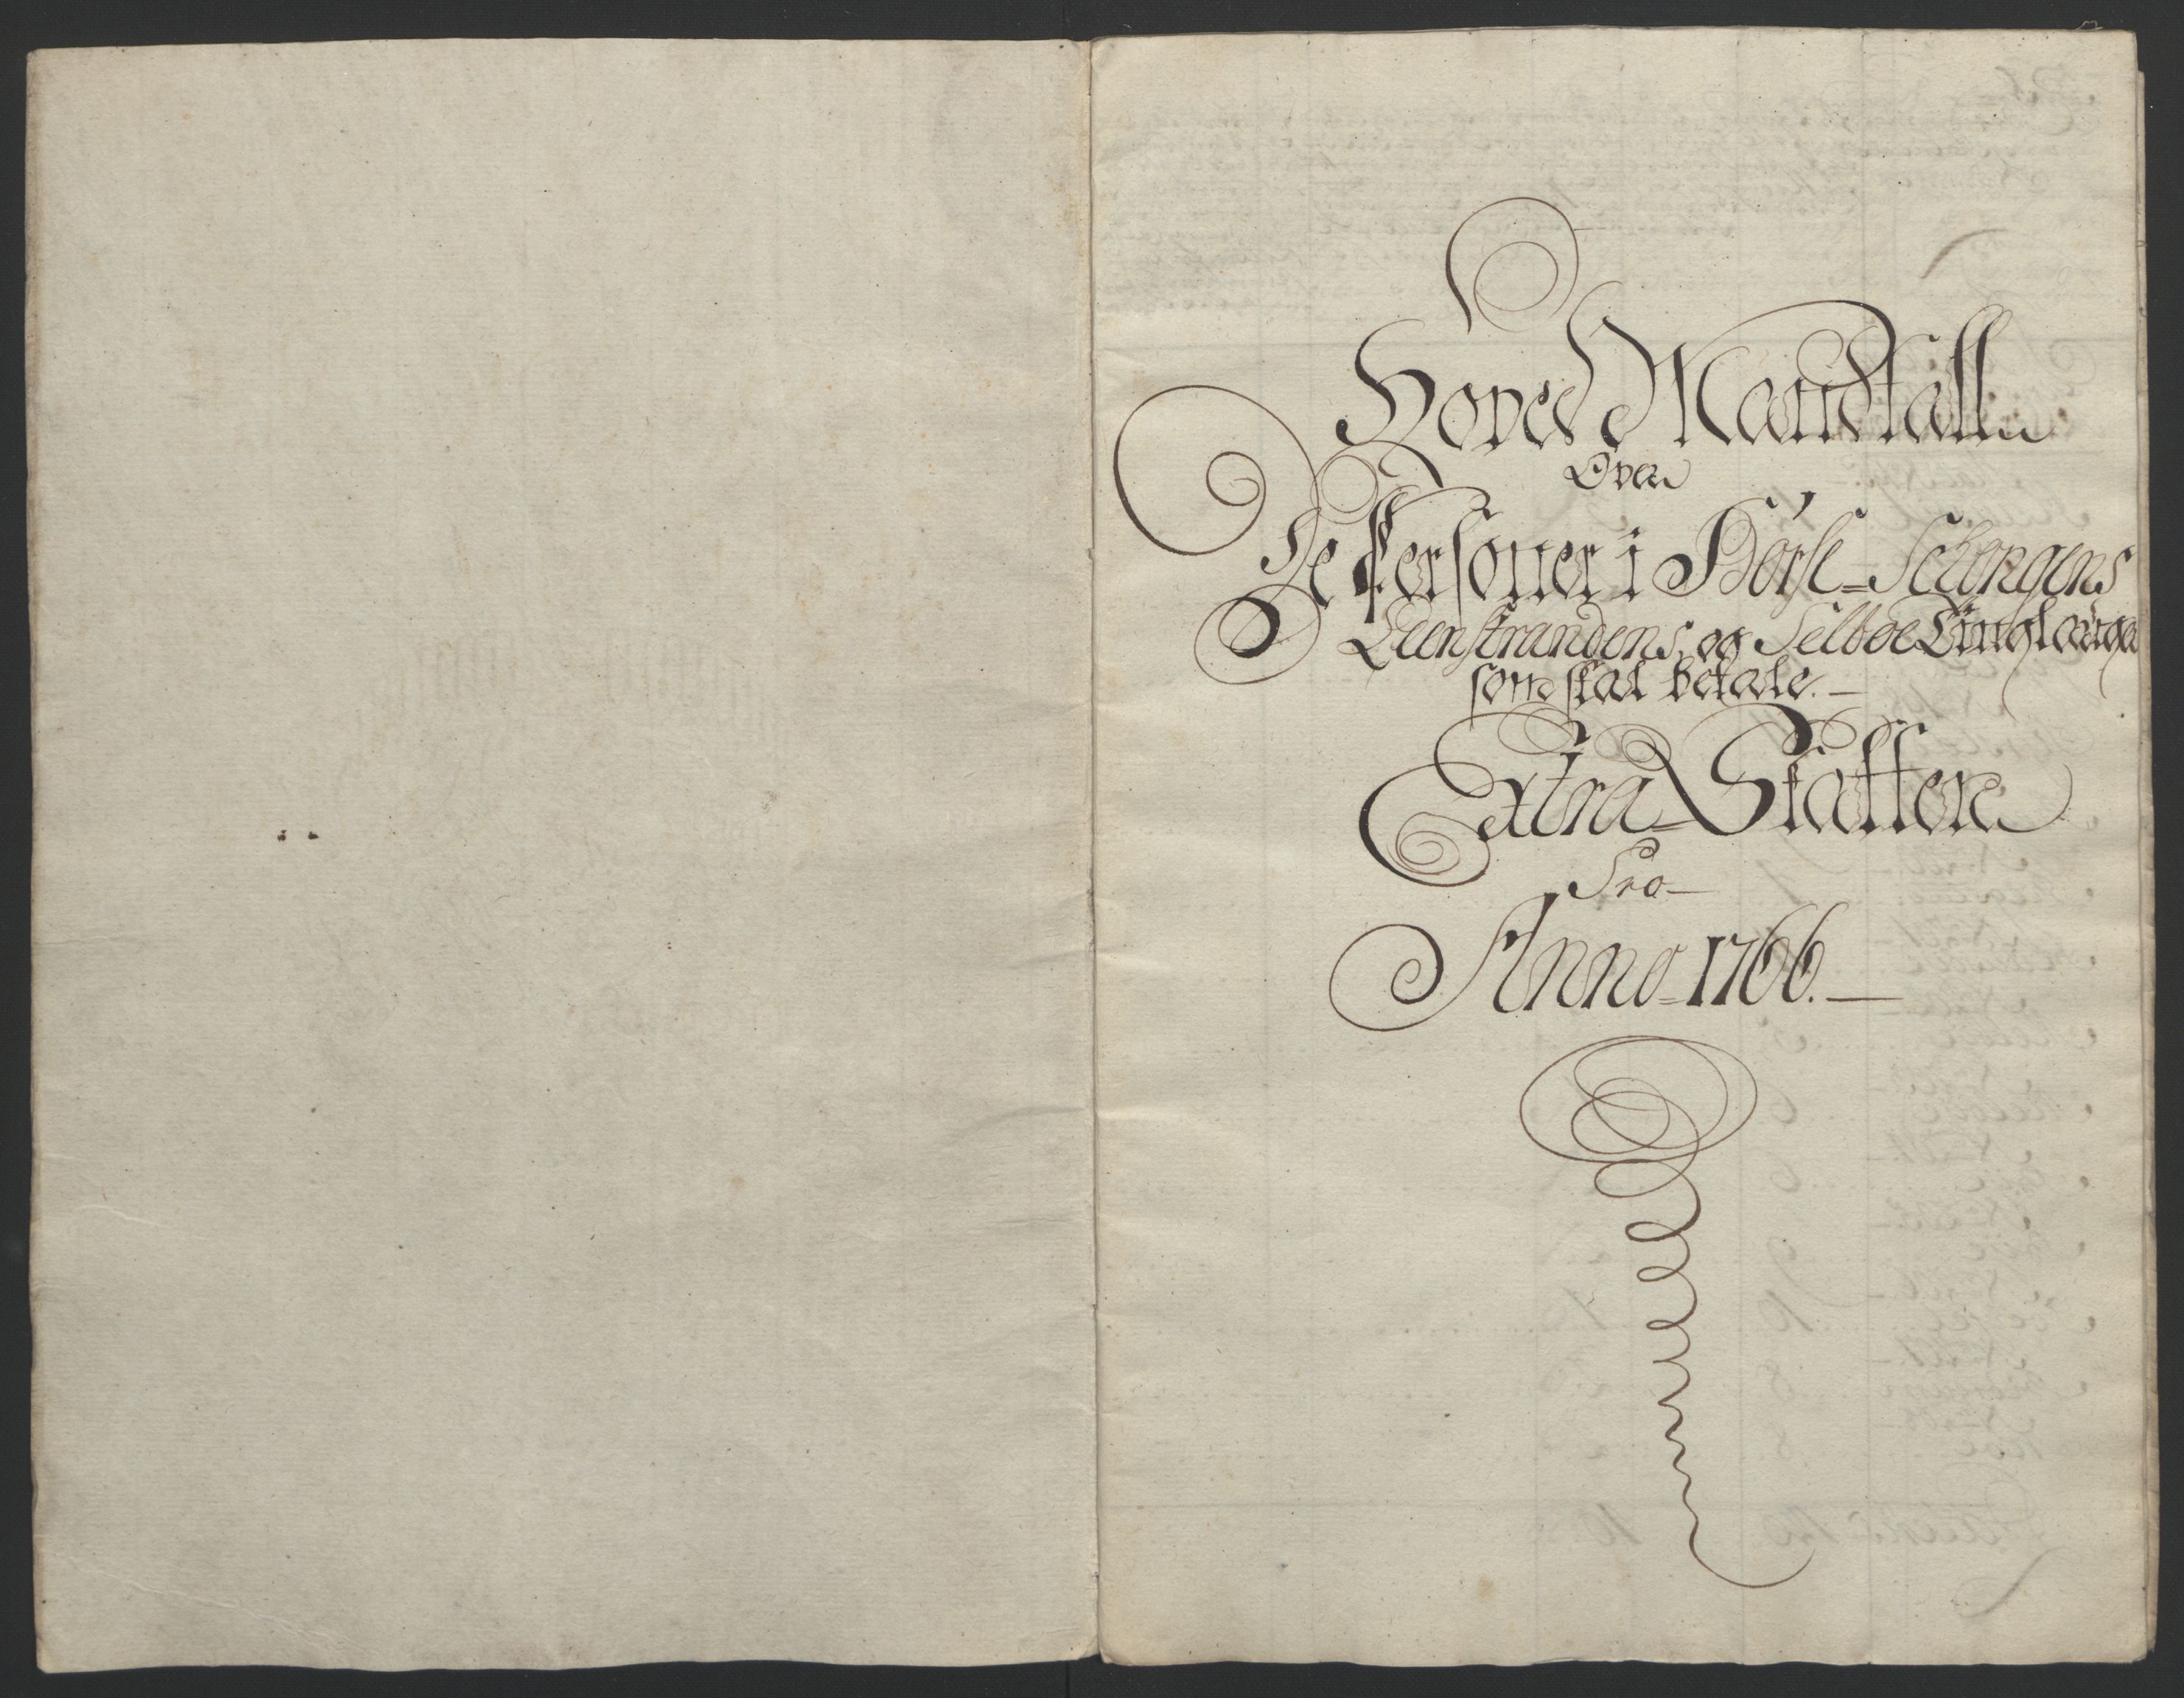 Hoved Mandtall
Over
De Personer i Børse- Schongens
Leenstrandens, og Selboe Tinglauge
som skal betale.
Extra-Skatten
Pro
Anno 1766.